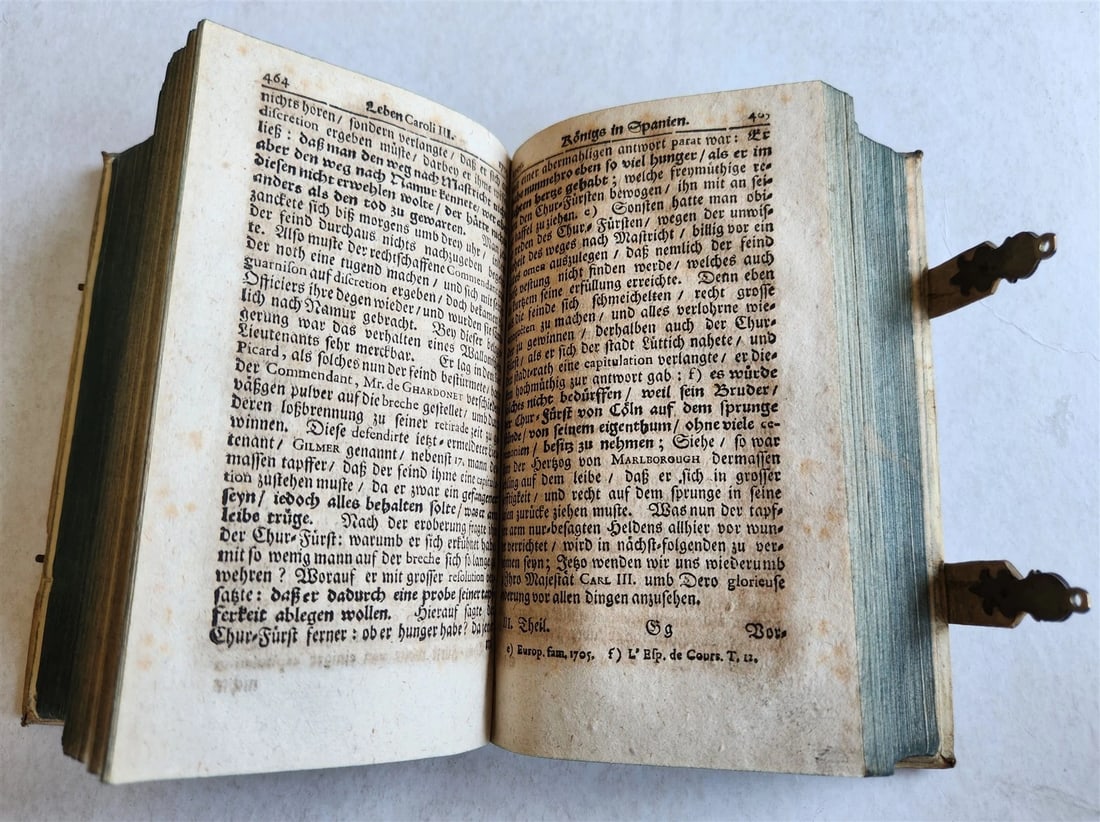 464
Leben Caroli III.
nichts hören / sondern verlangte / daß er
discretion ergeben müste / darbey er ihme
ließ: daß man den weg nach Mastricht
aber den weg nach Namur kennete / wer
diesen nicht erwehlen wolte / der hätte
anders als den tod zu gewarten.
zanckete sich biß morgens umb drey uhr /
der feind durchaus nichts nachzugeben
te. Also muste der rechtschaffene Commendant
der noth eine tugend machen / und sich mit
guarnison auf discretion ergeben / doch bekamen
Officiers ihre degen wieder / und wurden sie
lich nach Namur gebracht. Bey dieser
gerung war das verhalten eines Wallonischen
Lieutenants sehr merckbar. Er lag in dem
Picard, als solches nun der feind bestürmete /
der Commendant, Mr. de GHARDONET verschiedene
väßgen pulver auf die breche gestellet / umb
deren loßbrennung zu seiner retirade zeit zu
winnen. Diese defendirte jetzt-ermeldeter
tenant / GILMER genannt / nebenst 17. mann
massen tapffer / daß der feind ihme eine
tion zustehen muste / da er zwar ein gefangener
seyn / jedoch alles behalten solte / was er am
leibe trüge. Nach der eroberung fragte ihn
der Chur-Fürst: warumb er sich erkühnet habe
mit so wenig mann auf der breche sich so lange
wehren? Worauf er mit grosser resolution
satzte: daß er dadurch eine probe seiner tap-
ferkeit ablegen wollen. Hierauf sagte der
Chur-Fürst ferner: ob er hunger habe? da jener
Königs in Spanien.
465
einer abermahligen antwort parat war: Er
nunmehro eben so viel hunger / als er im
hertz gehabt; welche freymüthige re-
den Chur-Fürsten bewogen / ihn mit an sei-
taffel zu ziehen. e) Sonsten hatte man obi-
reden des Chur-Fürsten / wegen der unwis-
heit des weges nach Mastricht / billig vor ein
omen auszulegen / daß nemlich der feind
vestung nicht finden werde / welches auch
kurtzem seine erfüllung erreichte. Denn eben
die feinde sich schmeichelten / recht grosse
zu machen / und alles verlohrne wie-
zu gewinnen / derhalben auch der Chur-
Fürst / als er sich der stadt Lüttich nahete / und
stadt-rath eine capitulation verlangte / er die-
hochmüthig zur antwort gab: f) es würde
nicht bedürffen / weil sein Bruder /
der Chur-Fürst von Cöln auf dem sprunge
stünde / von seinem eigenthum / ohne viele ce-
remonien / besitz zu nehmen; Siehe / so war
der Hertzog von MARLBOROUGH dermassen
auf dem leibe / daß er sich in grosser
und recht auf dem sprunge in seine
zurücke ziehen muste. Was nun der tapf-
arm nur-besagten Heldens allhier vor wun-
verrichtet / wird in nächst-folgenden zu ver-
nehmen seyn; Jetzo wenden wir uns wiederumb
Ihro Majestät CARL III. umb Dero glorieuse
vor allen dingen anzusehen.
III. Theil. Gg Vor-
e) Europ. fam. 1705. f) L' Esp. de Cours. T. 12.